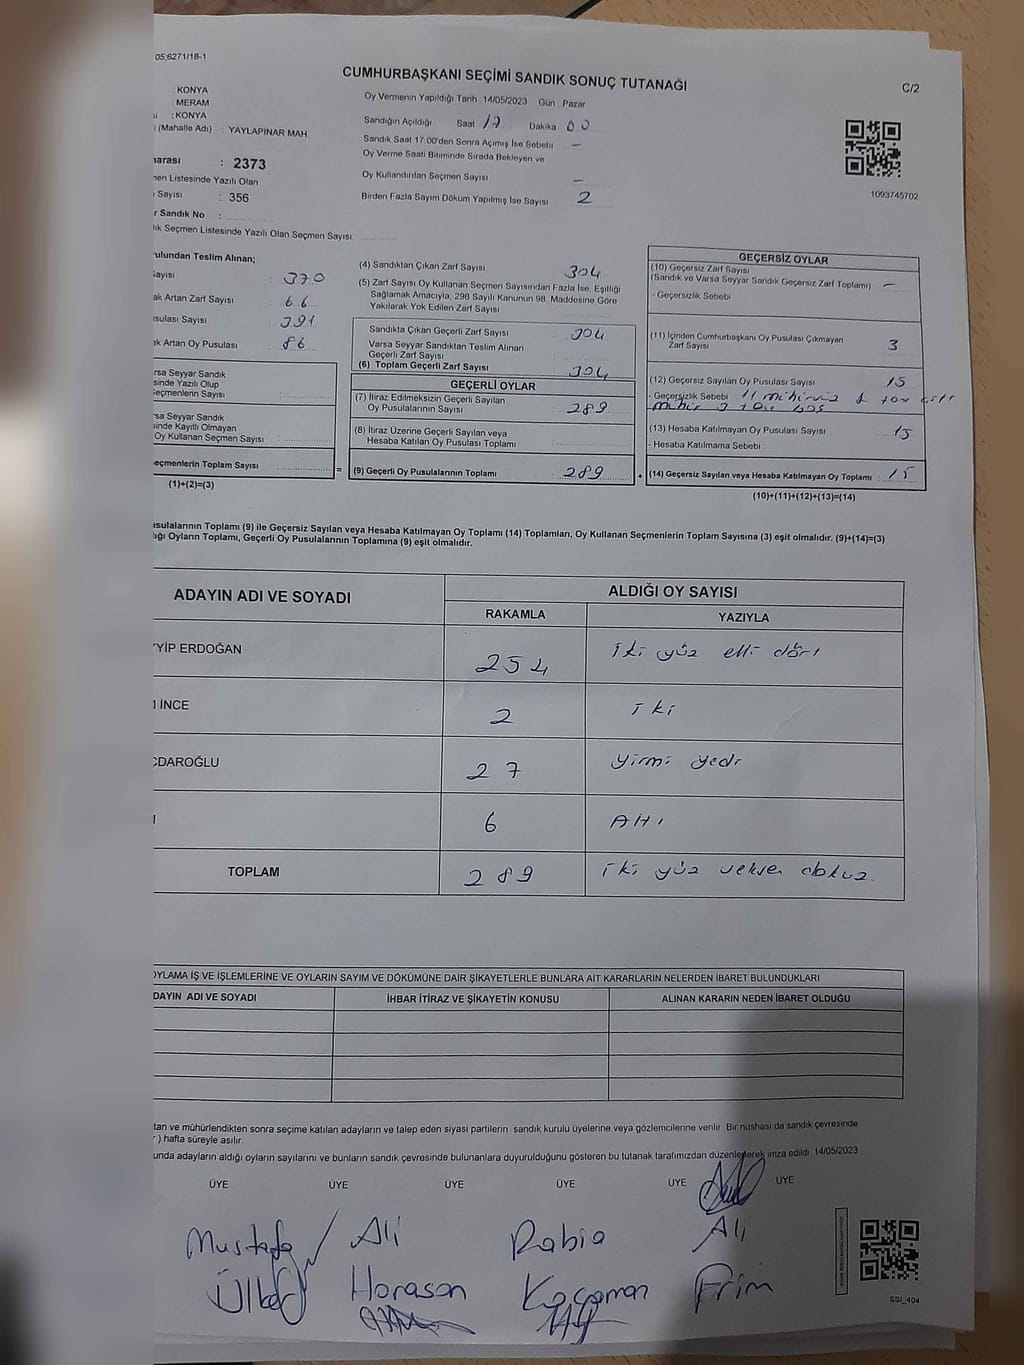 05;6271/18-1
CUMHURBAŞKANI SEÇİMİ SANDIK SONUÇ TUTANAĞI
C/2
KONYA
MERAM
: KONYA
(Mahalle Adı) : YAYLAPINAR MAH
Oy Vermenin Yapıldığı Tarih 14/05/2023 Gün Pazar
Sandığın Açıldığı Saat 17 Dakika 00
Sandık Saat 17:00'den Sonra Açımış İse Sebebi –
Oy Verme Saati Bitiminde Sırada Bekleyen ve
Oy Kullandırılan Seçmen Sayısı –
Birden Fazla Sayım Döküm Yapılmış İse Sayısı 2
1093745702
arası : 2373
men Listesinde Yazılı Olan
Sayısı : 356
r Sandık No :
lık Seçmen Listesinde Yazılı Olan Seçmen Sayısı:
rulundan Teslim Alınan;
sayısı : 370
ak Artan Zarf Sayısı : 66
sulası Sayısı : 391
ak Artan Oy Pusulası : 86
rsa Seyyar Sandık
sinde Yazılı Olup
Seçmenlerin Sayısı
rsa Seyyar Sandık
inde Kayıtlı Olmayan
Oy Kullanan Seçmen Sayısı :
eçmenlerin Toplam Sayısı : =
(1)+(2)=(3)
(4) Sandıktan Çıkan Zarf Sayısı 304
(5) Zarf Sayısı Oy Kullanan Seçmen Sayısından Fazla İse, Eşitliği
Sağlamak Amacıyla, 298 Sayılı Kanunun 98. Maddesine Göre
Yakılarak Yok Edilen Zarf Sayısı
Sandıkta Çıkan Geçerli Zarf Sayısı 304
Varsa Seyyar Sandıktan Teslim Alınan
Geçerli Zarf Sayısı
(6) Toplam Geçerli Zarf Sayısı 304
GEÇERLİ OYLAR
(7) İtiraz Edilmeksizin Geçerli Sayılan
Oy Pusulalarının Sayısı 289
(8) İtiraz Üzerine Geçerli Sayılan veya
Hesaba Katılan Oy Pusulası Toplamı
(9) Geçerli Oy Pusulalarının Toplamı 289 +
GEÇERSİZ OYLAR
(10) Geçersiz Zarf Sayısı
(Sandık ve Varsa Seyyar Sandık Geçersiz Zarf Toplamı) : –
- Geçersizlik Sebebi :
(11) İçinden Cumhurbaşkanı Oy Pusulası Çıkmayan
Zarf Sayısı 3
(12) Geçersiz Sayılan Oy Pusulası Sayısı 15
- Geçersizlik Sebebi 11 mühürsüz çift
mühür 3
(13) Hesaba Katılmayan Oy Pusulası Sayısı 15
- Hesaba Katılmama Sebebi :
(14) Geçersiz Sayılan veya Hesaba Katılmayan Oy Toplamı : 15
(10)+(11)+(12)+(13)=(14)
usulalarının Toplamı (9) ile Geçersiz Sayılan veya Hesaba Katılmayan Oy Toplamı (14) Toplamları, Oy Kullanan Seçmenlerin Toplam Sayısına (3) eşit olmalıdır. (9)+(14)=(3)
lığı Oyların Toplamı, Geçerli Oy Pusulalarının Toplamına (9) eşit olmalıdır.
ADAYIN ADI VE SOYADI
ALDIĞI OY SAYISI
RAKAMLA YAZIYLA
YYİP ERDOĞAN 254 iki yüz elli dört
İNCE 2 iki
ÇDAROĞLU 27 yirmi yedi
6 Altı
TOPLAM 289 iki yüz seksen dokuz.
OYLAMA İŞ VE İŞLEMLERİNE VE OYLARIN SAYIM VE DÖKÜMÜNE DAİR ŞİKAYETLERLE BUNLARA AİT KARARLARIN NELERDEN İBARET BULUNDUKLARI
DAYIN ADI VE SOYADI İHBAR İTİRAZ VE ŞİKAYETİN KONUSU ALINAN KARARIN NEDEN İBARET OLDUĞU
tan ve mühürlendikten sonra seçime katılan adayların ve talep eden siyasi partilerin sandık kurulu üyelerine veya gözlemcilerine verilir. Bir nüshası da sandık çevresinde
) hafta süreyle asılır.
unda adayların aldığı oyların sayılarını ve bunların sandık çevresinde bulunanlara duyurulduğunu gösteren bu tutanak tarafımızdan düzenlenerek imza edildi 14/05/2023
ÜYE ÜYE ÜYE ÜYE ÜYE ÜYE
Mustafa Ali Rabia Ali
Ülker Horasan Kocaman Erim
SSI_404